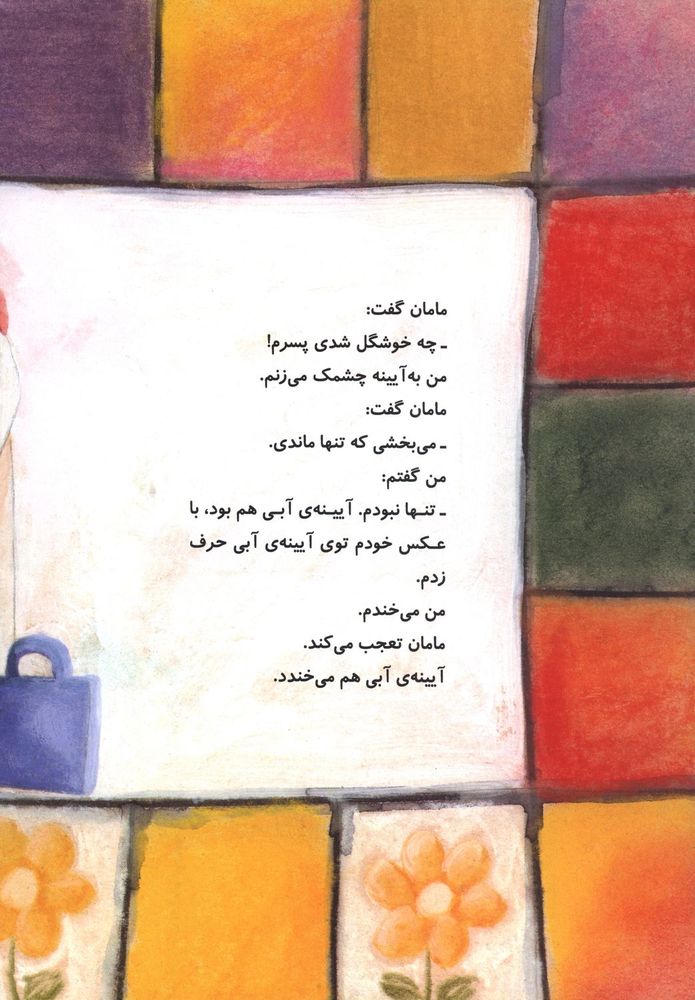 مامان گفت:
ـ چه خوشگل شدی پسرم!
من به‌آیینه چشمک می‌زنم.
مامان گفت:
ـ می‌بخشی که تنها ماندی.
من گفتم:
ـ تنـها نبودم. آیینـه‌ی آبـی هم بود، با
عـکس خودم توی آیینه‌ی آبی حرف
زدم.
من می‌خندم.
مامان تعجب می‌کند.
آیینه‌ی آبی هم می‌خندد.